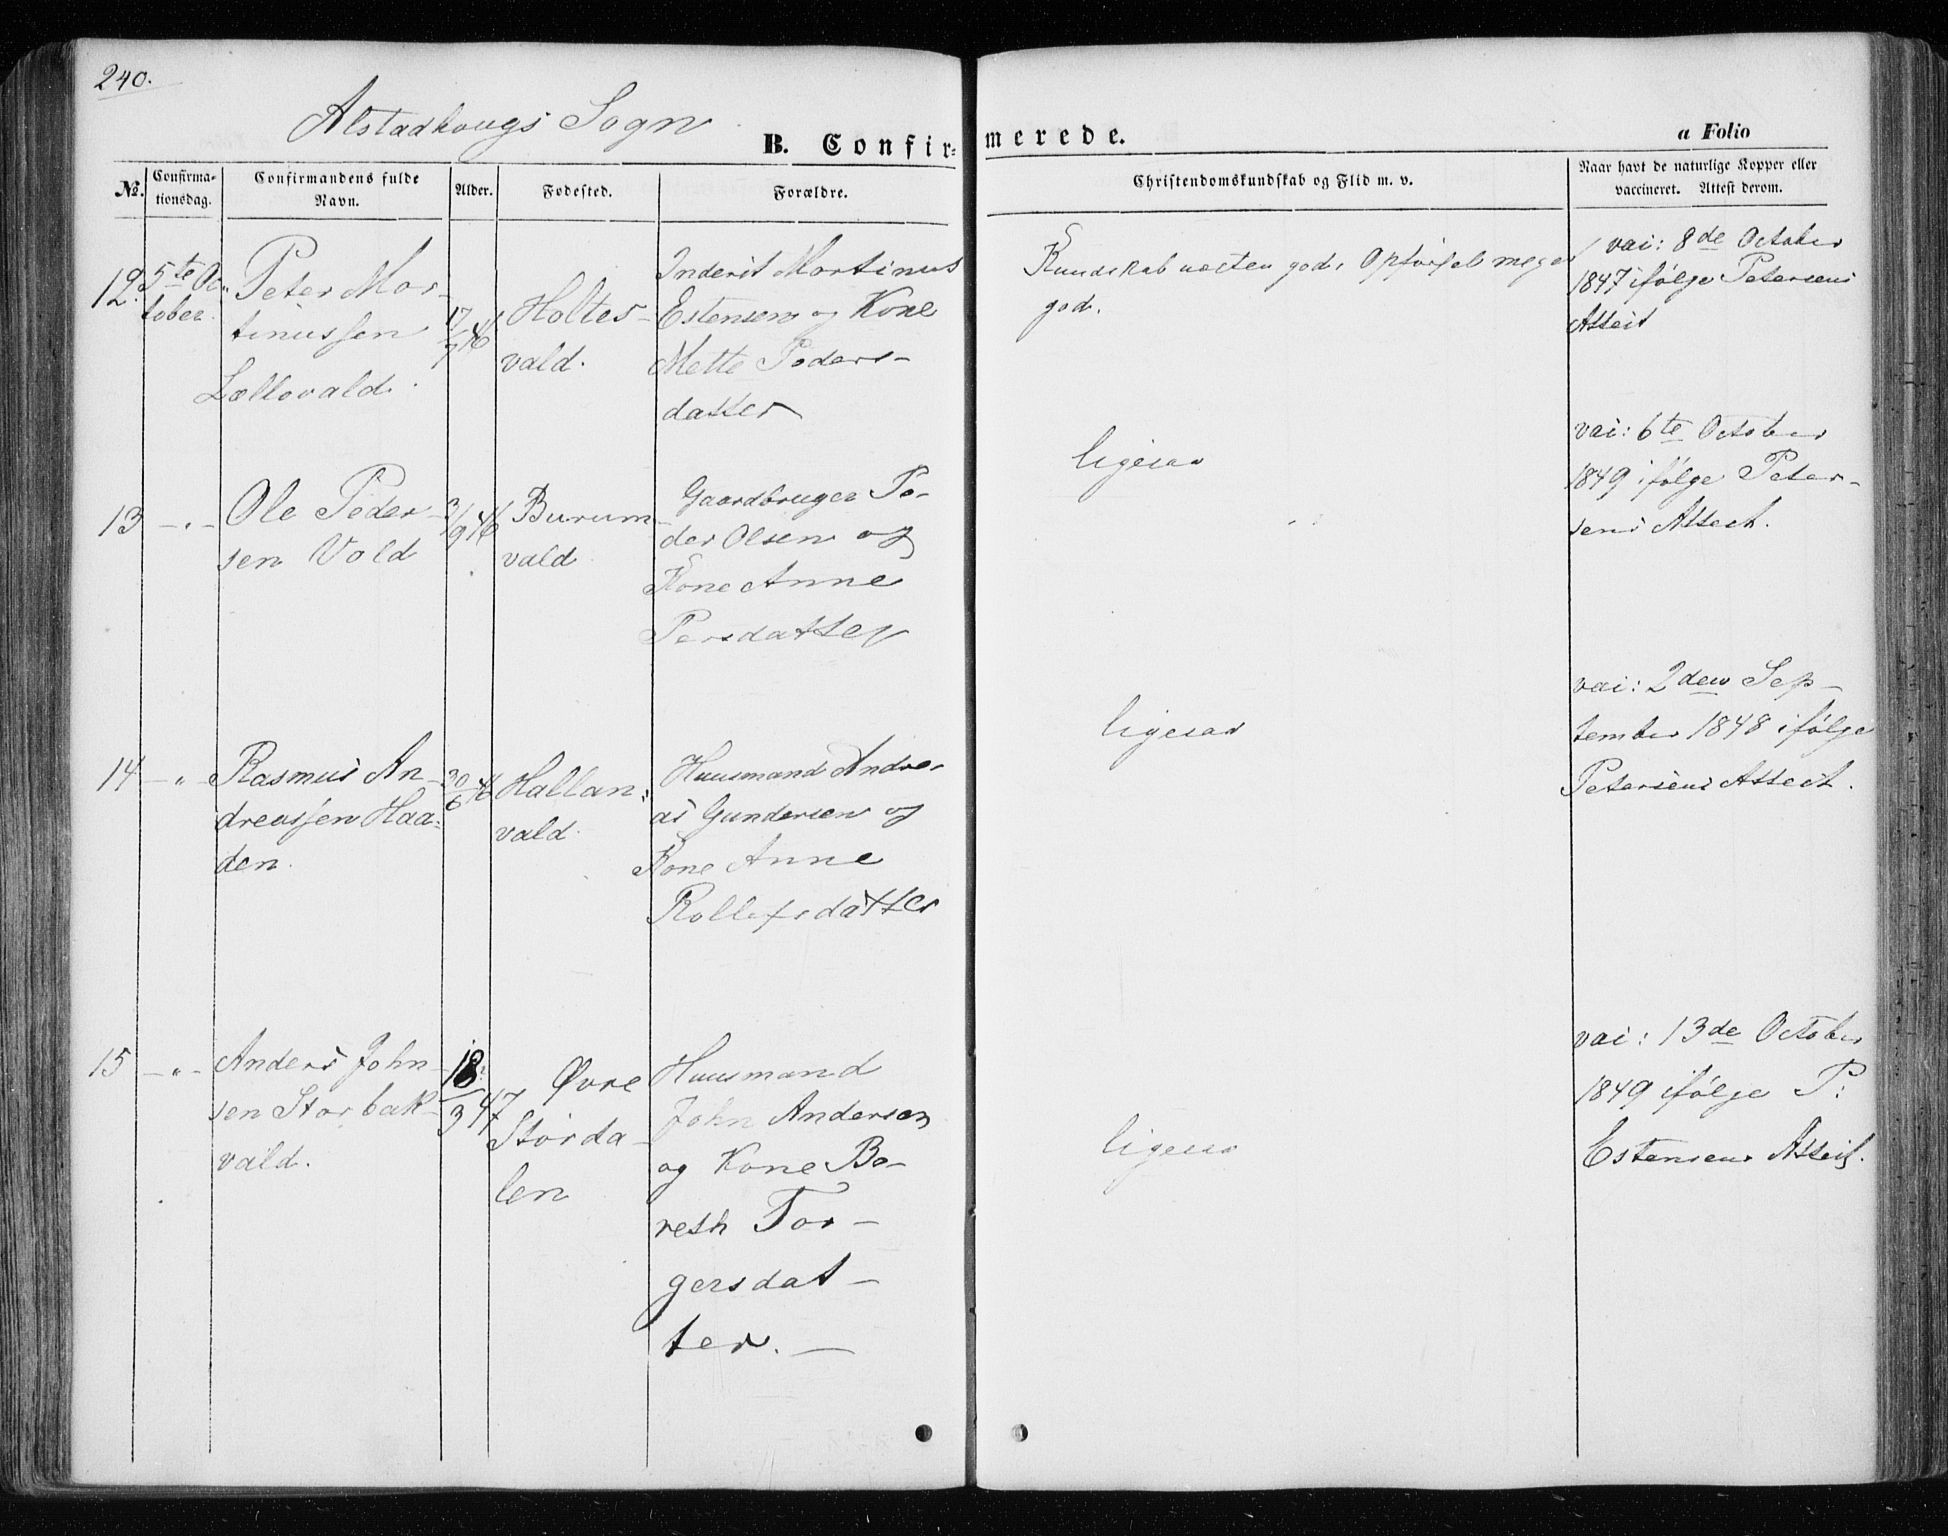 240.
Alstadhougs Sogn
B. Confirmerede.
a Folio
No.
Confirma-
tionsdag.
Confirmandens fulde
Navn.
Alder.
Fødested.
Forældre.
Christendomskundskab og Flid m. v.
Naar havt de naturlige Kopper eller
vaccineret. Attest derom.
12. 5te Oc-
tober.
Peter Mor-
tinussen
17/7 46
Holtes-
vald.
Inderst Mortinus
Estensen og Kone
Mette Peders-
datter
Kundskab næsten god,
god.
vai: 8de October
1847 ifølge Petersens
Attest
13 -"- Ole Peder-
sen Vold
3/9 46
Burum-
vald
Gaardbruger Pe-
der Olsen og
Kone Anne
Persdatter
ligesaa
vai: 6te October
1849 ifølge Peter-
sens Attest.
14 -"- Rasmus An-
dreassen Haa-
den.
30/6 46
Hallan-
vald.
Huusmand Andre-
as Gundersen og
Kone Anne
Rollefsdatter
ligesaa
vai: 2den Sep-
tember 1848 ifølge
Petersens Attest.
15 -"- Anders John-
sen Storbak-
vald.
18/3 47
Øvre
Størda-
len
Huusmand
John Andersen
og Kone Be-
reth Tor-
gersdat-
ter. -
ligesaa
vai: 13de October
1849 ifølge P:
Estensens Attest.